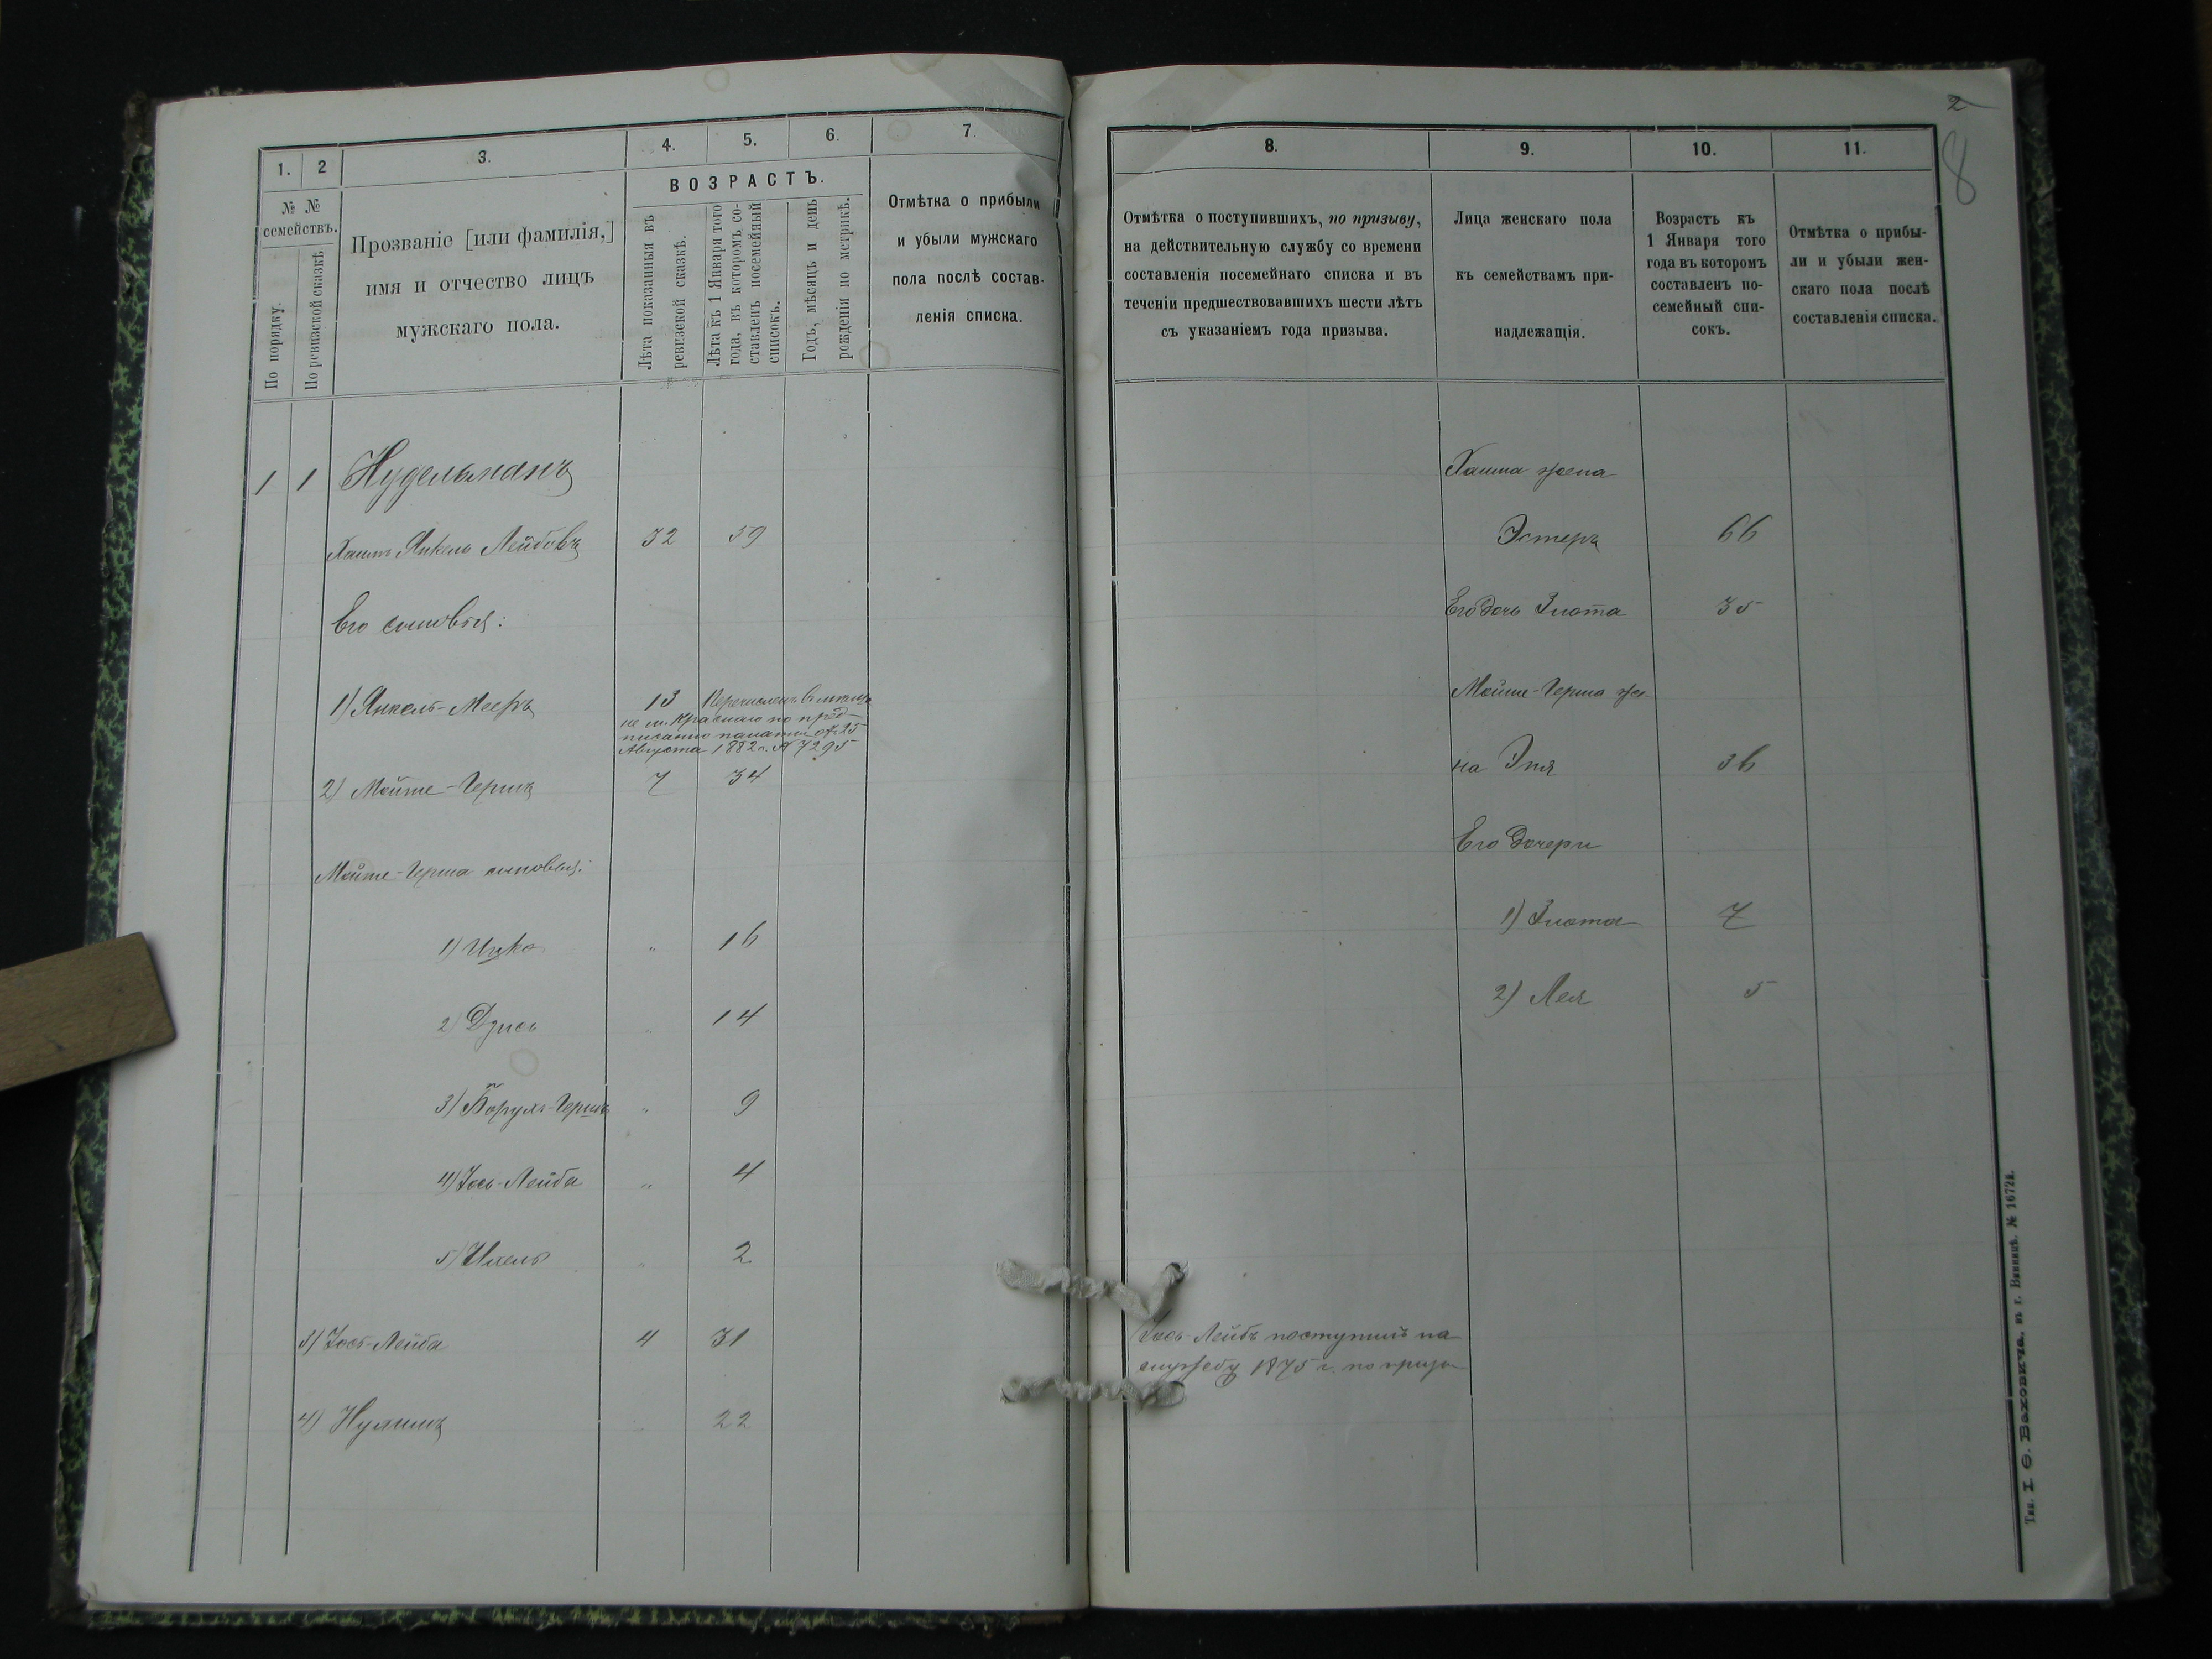 1.
2
3.
4.
5.
6.
7.
№ №
семействъ.
По порядку.
По ревизской сказкѣ
Прозваніе [или фамилія,]
имя и отчество лицъ
мужскаго пола.
ВОЗРАСТЪ.
Лѣта показанныя въ
ревизской сказкѣ.
Лѣта къ 1 Января того
года, въ которомъ со-
ставленъ посемейный
списокъ.
Годъ, мѣсяцъ и день
рожденія по метрикѣ.
Отмѣтка о прибыли
и убыли мужскаго
пола послѣ состав-
ленія списка.
1 1 Нудельманъ
Янкель Лейбовъ 32 59
Его сыновья:
1) Янкель-Мееръ 13 Перечисленъ
Августа 1882 г. № 7295
2) Мойше-Гершъ 7 34
Мойше-Герша сыновья:
1) Ицко " 16
2) " 14
3) Борухъ-Гершъ " 9
4) Іось-Лейба " 4
5) " 2
3) Іось-Лейба 4 31
4) 22
2
8
8.
9.
10.
11.
Отмѣтка о поступившихъ, по призыву,
на дѣйствительную службу со времени
составленія посемейнаго списка и въ
теченіи предшествовавшихъ шести лѣтъ
съ указаніемъ года призыва.
Лица женскаго пола
къ семействамъ при-
надлежащія.
Возрастъ къ
1 Января того
года въ которомъ
составленъ по-
семейный спи-
сокъ.
Отмѣтка о прибы-
ли и убыли жен-
скаго пола послѣ
составленія списка.
жена
Эстеръ 66
Его дочь Злота 35
Мойше-Герша же-
на 36
Его дочери
1) Злота 7
2) Лея 5
Іось-Лейбъ поступилъ на
службу 1875 г. по призы
Тип. І. Ѳ. Баховича, въ г. Винницѣ. № 1672а.